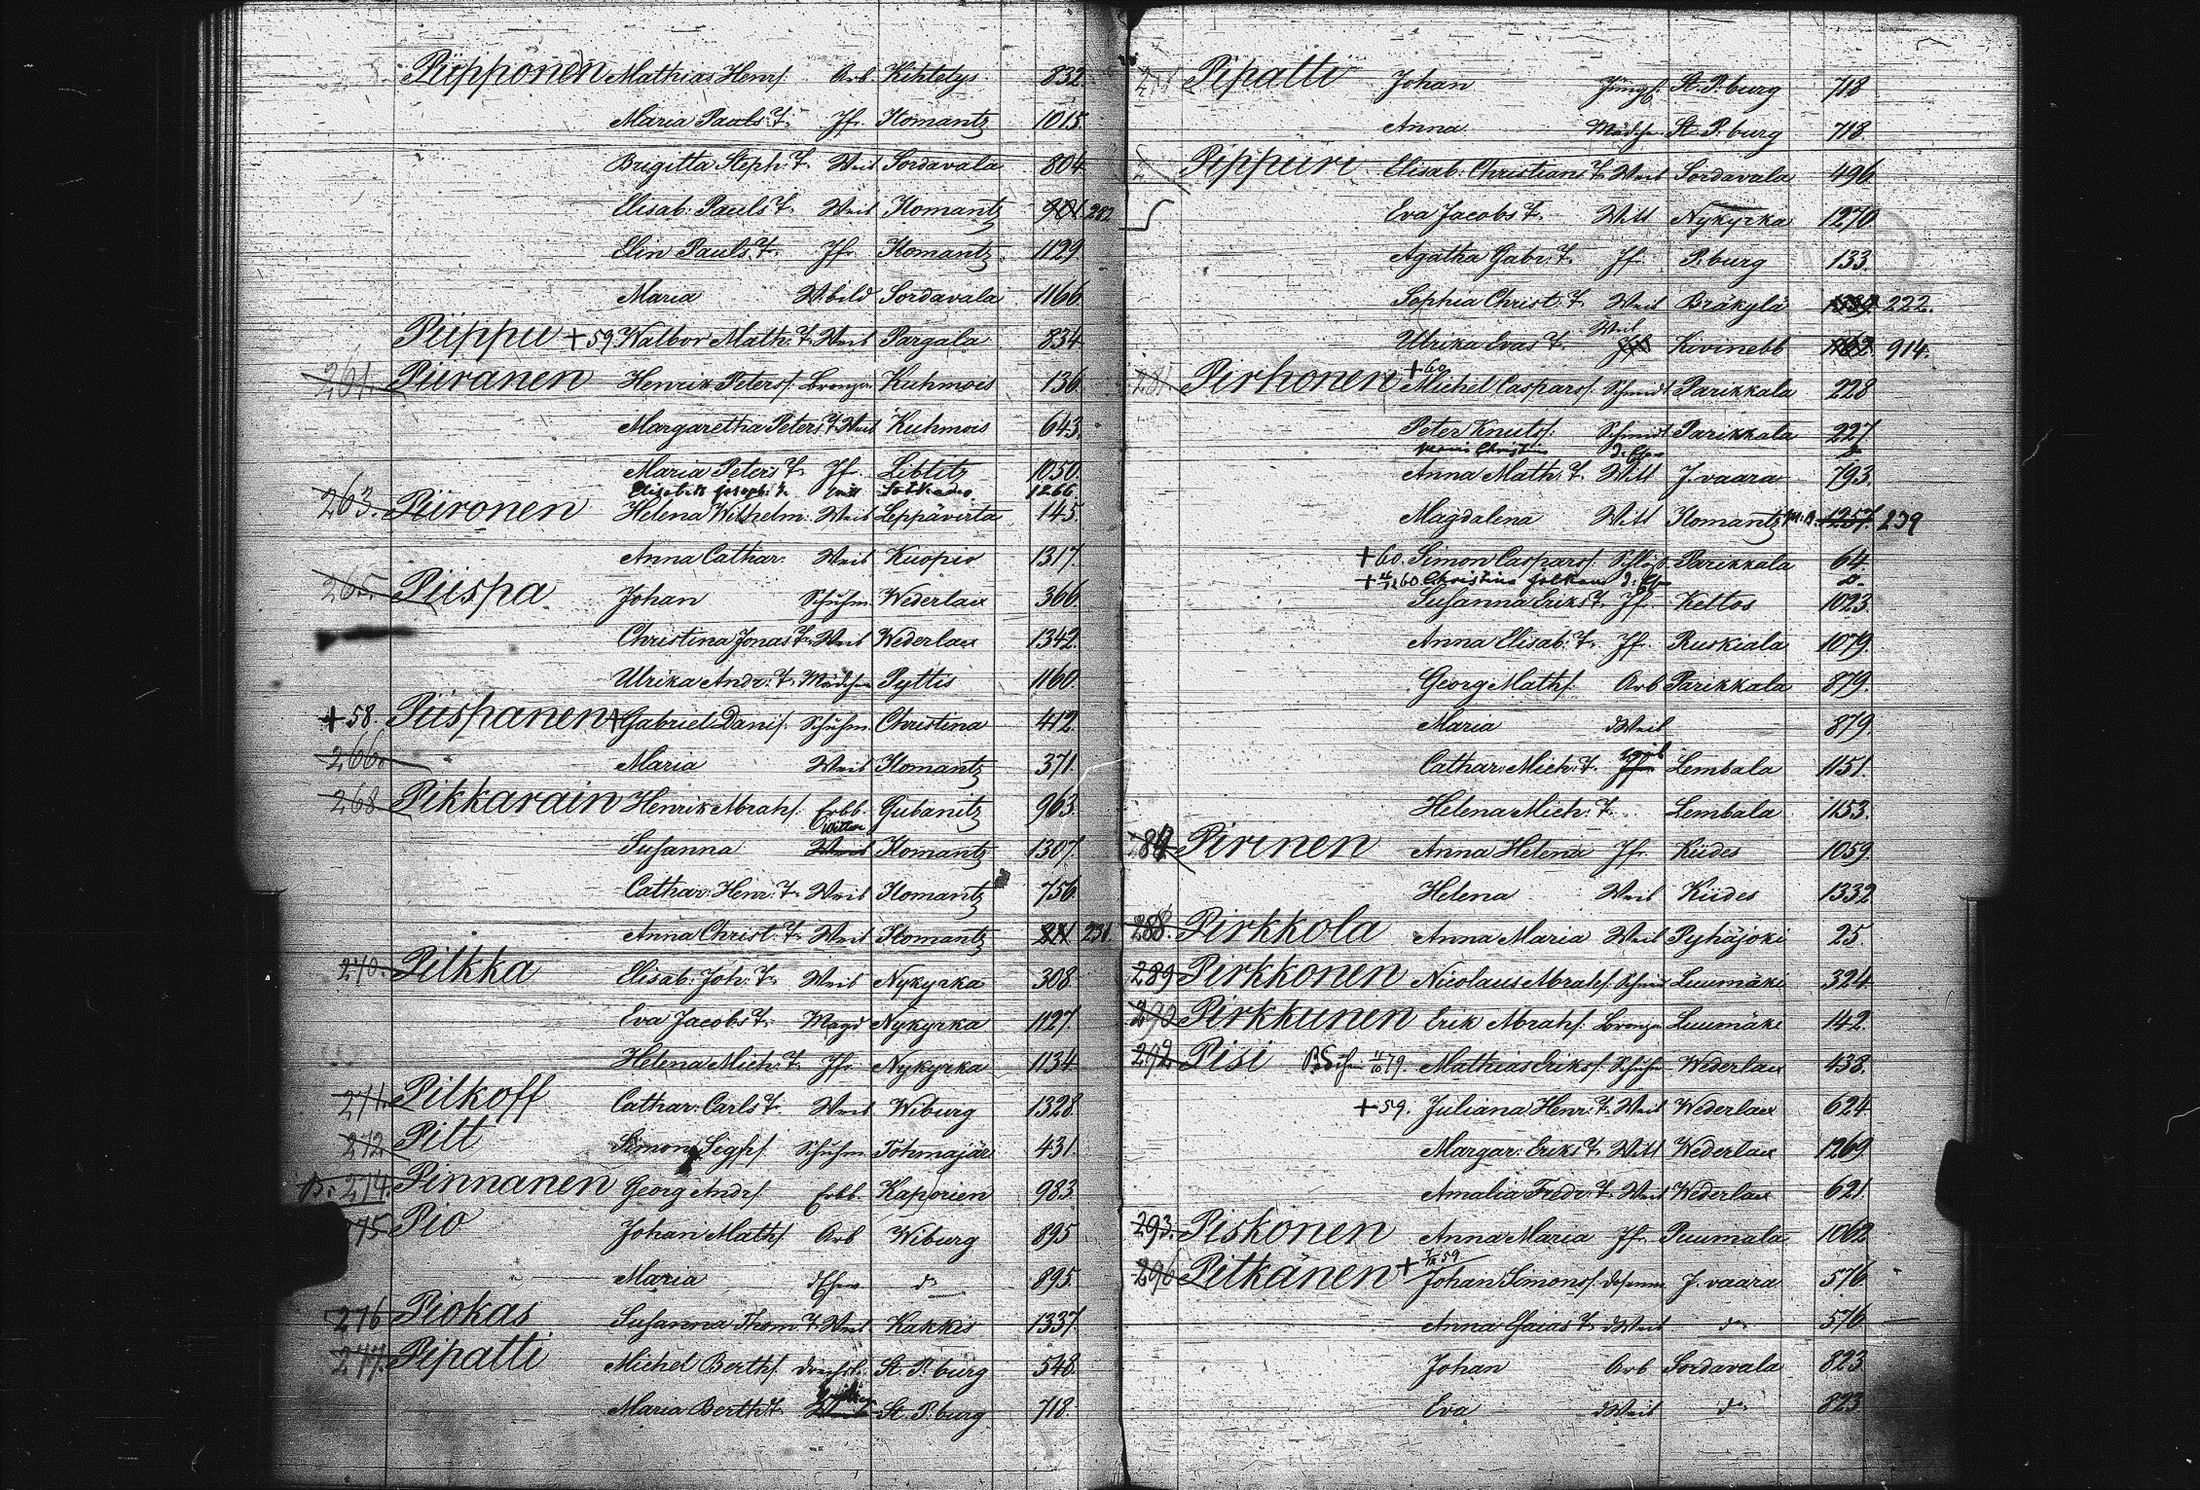 Piipponen Mathias Henrs. Arb. Kihtelys. 832.
Maria Pauls T. Jfr. Ilomantz 1015.
Brigitta Steph. T. Weib Sordavala 804
Elisab. Pauls T. Weib Ilomantz 282
Elin Pauls T. Jfr. Ilomantz 1129.
Maria Sordavala 1166
Piippu +59 Walbor Math. T. Weib Pargala 834
261. Piiranen Henrik Peters. Kuhmois 136.
Margaretha Peters T. Weib Kuhmois 643.
Maria Peters T. Jfr. Libtitz 1050.
Elisabeth Joseph. T. Witt 1266
263. Piironen Helena Wilhelm: Weib Leppävirta 145.
Anna Cathar. Weib Kuopio 1317.
265. Piispa Johan Schuhm. Wederlax 366
Christina Jonas T. Weib Wederlax 1342.
Ulrika Andr: T. Mädchen Pyttis 1160.
+58. Piispanen + Gabriel Danis. Schuhm. Christina 412.
266. Maria Weib Ilomantz 371.
268 Pikkarain Henrik Abrahs. Erbb. Gubanitz 963.
Wittwe
Susanna Weib Ilomantz 1307.
Cathar: Henr: T. Weib Ilomantz 756
Anna Christ. T. Weib Ilomantz 231.
270. Pilkka Elisab. Joh. T. Weib Nykyrka 308.
Eva Jacobs T. Magd Nykyrka 1127.
Helena Mich. T. Jfr. Nykyrka 1134
271. Pilkoff Cathar. Carls T. Weib Wiburg 1328.
272 Pilt Simon Schuhm Tohmajär 431.
274. Pinnanen Georg Andrs. Erbb. Kaporien 983.
275 Pio Johan Maths. Arb Wiburg 895
Maria do 895.
276 Piokas Susanna Thom. T. Weib. Kakkis 1337.
277. Pipatti Michel Berths. Drechsl. St. P. burg 548.
Maria Berth. T. St. P. burg 718.
Pipatti Johan St. P. burg 718
Anna Mädchen St. P. burg 718.
Pippuri Elisab. Christians T. Weib Sordavala 496
Eva Jacobs T. Witt Nykyrka 1270
Agatha Gabr. T. Jfr. P. burg 133.
Sophia Christ. T. Weib Bräkylä 222.
Weib
Ulrika Evas T. Jfr Kivinebb 914.
+60
281. Pirhonen Michel Caspars. Schmidt Parikkala 228
Peter Knuts. Schmidt Parikkala 227.
Maria Christina
Anna Math. T. Witt J. vaara 793.
Magdalena Witt Ilomantz 1257. 239
+60. Simon Caspars. Schloss. Parikkala 64.
Christina
Susanna Eriks T. Jfr. Keltos 1023.
Anna Elisab. T. Jfr. Ruskiala 1079.
Georg Maths. Arb Parikkala 879.
Maria dWeib 879.
Cathar. Mich. T. Lembala 1151.
Helena Mich. T. Lembala 1153.
Pirinen Anna Helena Jfr. Kiides 1059.
Helena Weib Kiides 1332
288. Pirkkola Anna Maria Weib Pyhäjoki 25.
289 Pirkkonen Nicolaus Abrahs. Luumäki 324.
290 Pirkkunen Erik Abrahs. Luumäki 142.
292 Pisi Mathias Eriks. Schuhm Wederlax 438.
+59. Juliana Henr. T. Weib Wederlax 624.
Margar. Eriks T. Witt Wederlax 1269.
Amalia Fredr. T. Weib Wederlax 621.
293. Piskonen Anna Maria Jfr. Puumala 1062
296 Pitkänen + Johan Simons. J. vaara 576.
Anna Esaias T. dWeib do 576
Johan Arb Sordavala 823
Eva dWeib do 823